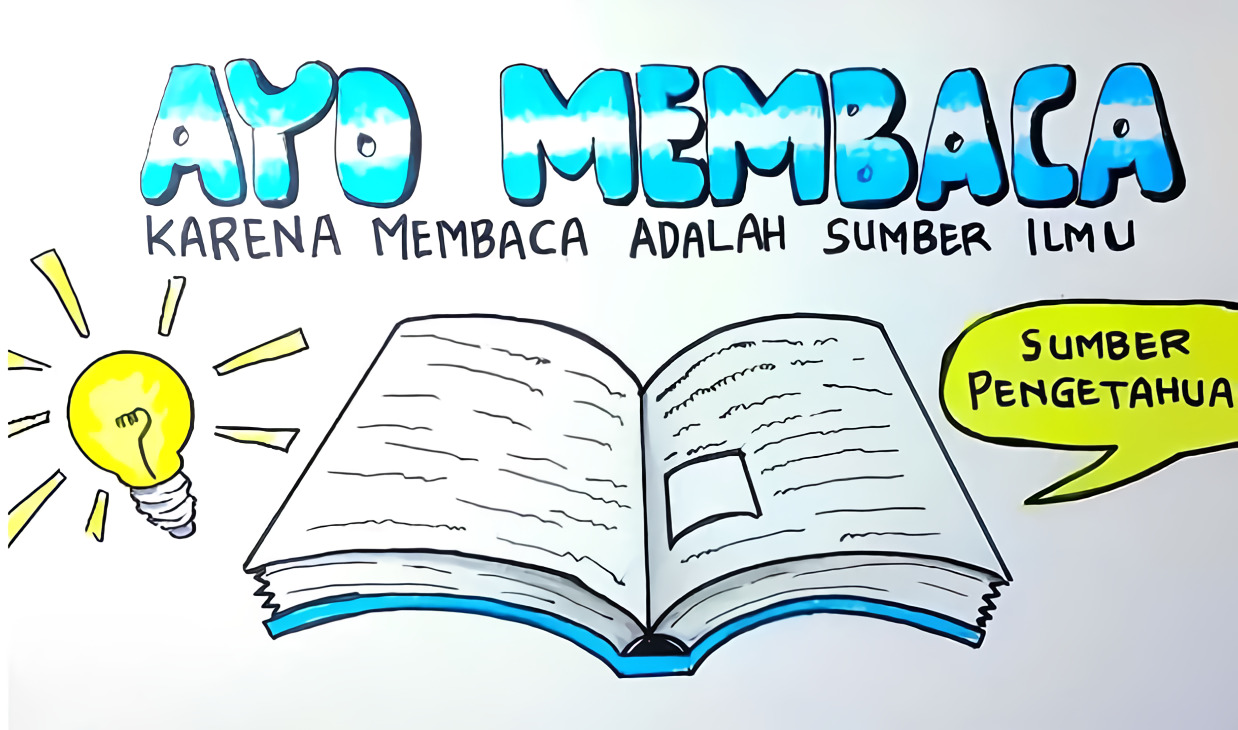 AYO MEMBACA
KARENA MEMBACA ADALAH SUMBER ILMU
SUMBER
PENGETAHUA